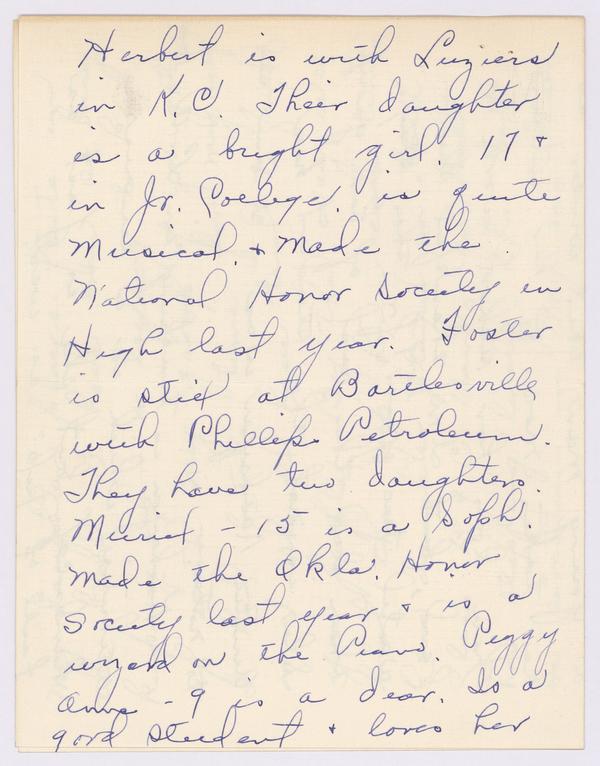 Herbert is with Luziers
in K.C. Their daughter
is a bright girl. 17 +
in Jr. College. is quite
Musical. + Made the
National Honor Society in
High last year. Foster
is still at Bartlesville
with Phillips Petroleum.
They have two daughters.
Muriel - 15 is a Soph.
Made the Okla. Honor
Society last year + is a
wizard on the Piano. Peggy
Anne - 9 is a dear. Is a
good student + loves her